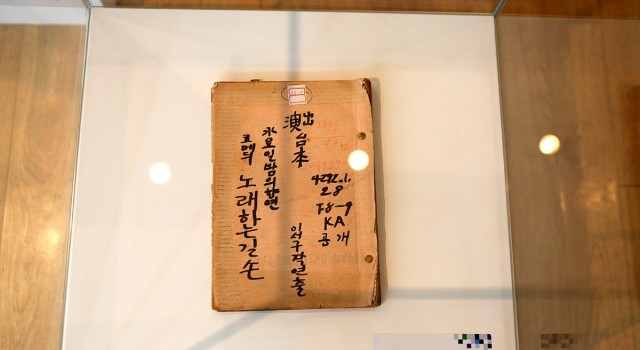 演出
台本
4292.1.
28
KA
공개
이서구 작 연출
水요일밤의향연
코메디 노래하는길손